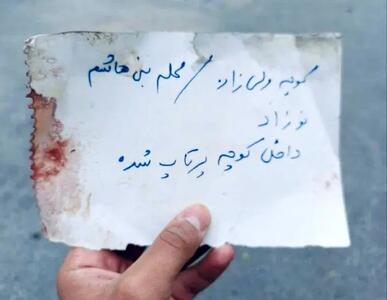 کوچه ولی زاد / محله بنی هاشم
نوزاد
داخل کوچه پرتاپ شده